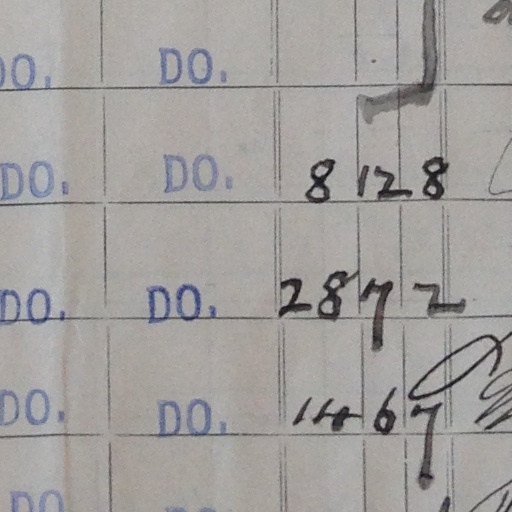 DO. DO.
DO. DO. 8 12 8
DO. DO. 28 7 2
DO. DO. 114 6 7
DO